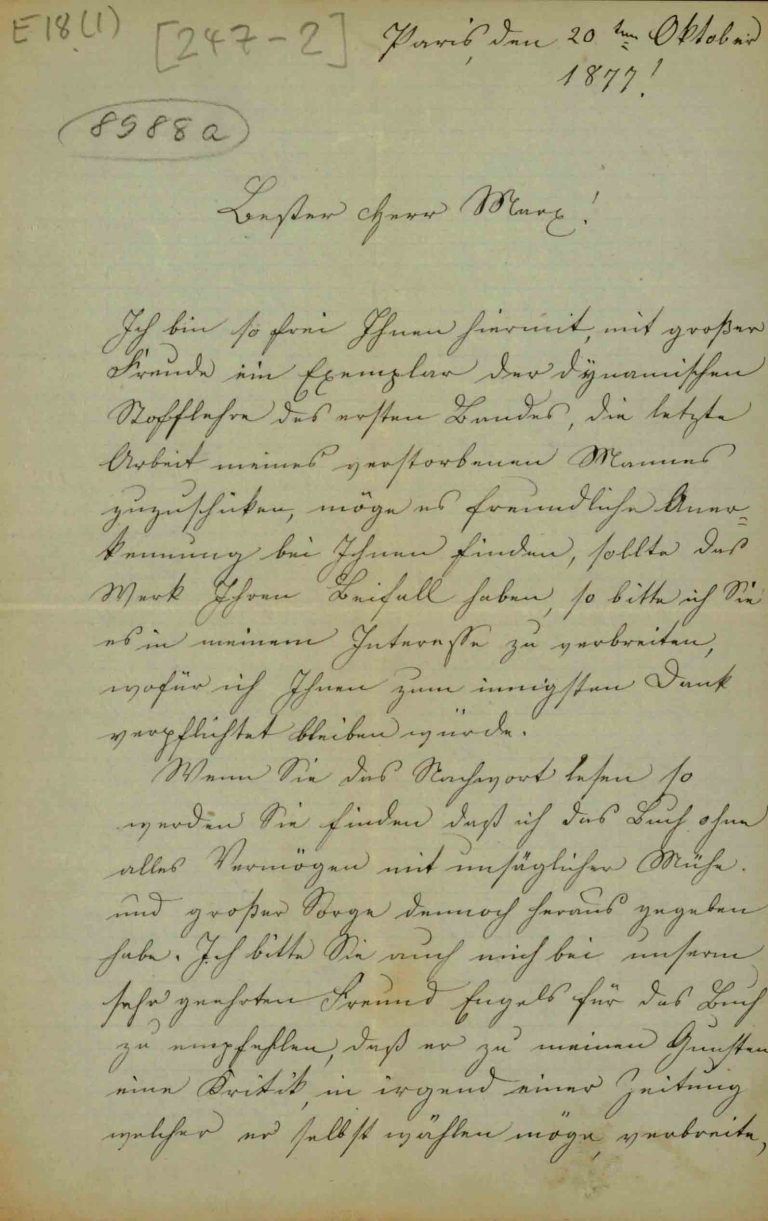 E 18 (1)
[247-2]
Paris, den 20ten Oktober
1877!
8988a
Bester Herr Marx!
Ich bin so frei Ihnen hiermit, mit großer
Freude ein Exemplar der dynamischen
Stofflehre des ersten Bandes, die letzte
Arbeit meines verstorbenen Mannes
zuzuschicken, möge es freundliche Aner=
kennung bei Ihnen finden, sollte das
Werk Ihren Beifall haben, so bitte ich Sie
es in meinem Interesse zu verbreiten,
wofür ich Ihnen zum innigsten Dank
verpflichtet bleiben würde.
Wenn Sie das Nachwort lesen so
werden Sie finden daß ich das Buch ohne
alles Vermögen mit unsäglicher Mühe
und großer Sorge dennoch heraus gegeben
habe. Ich bitte Sie auch mich bei unserm
sehr geehrten Freund Engels für das Buch
zu empfehlen, daß er zu meinen Gunsten
eine Kritik, in irgend einer Zeitung
welcher er selbst wählen möge, verbreite,